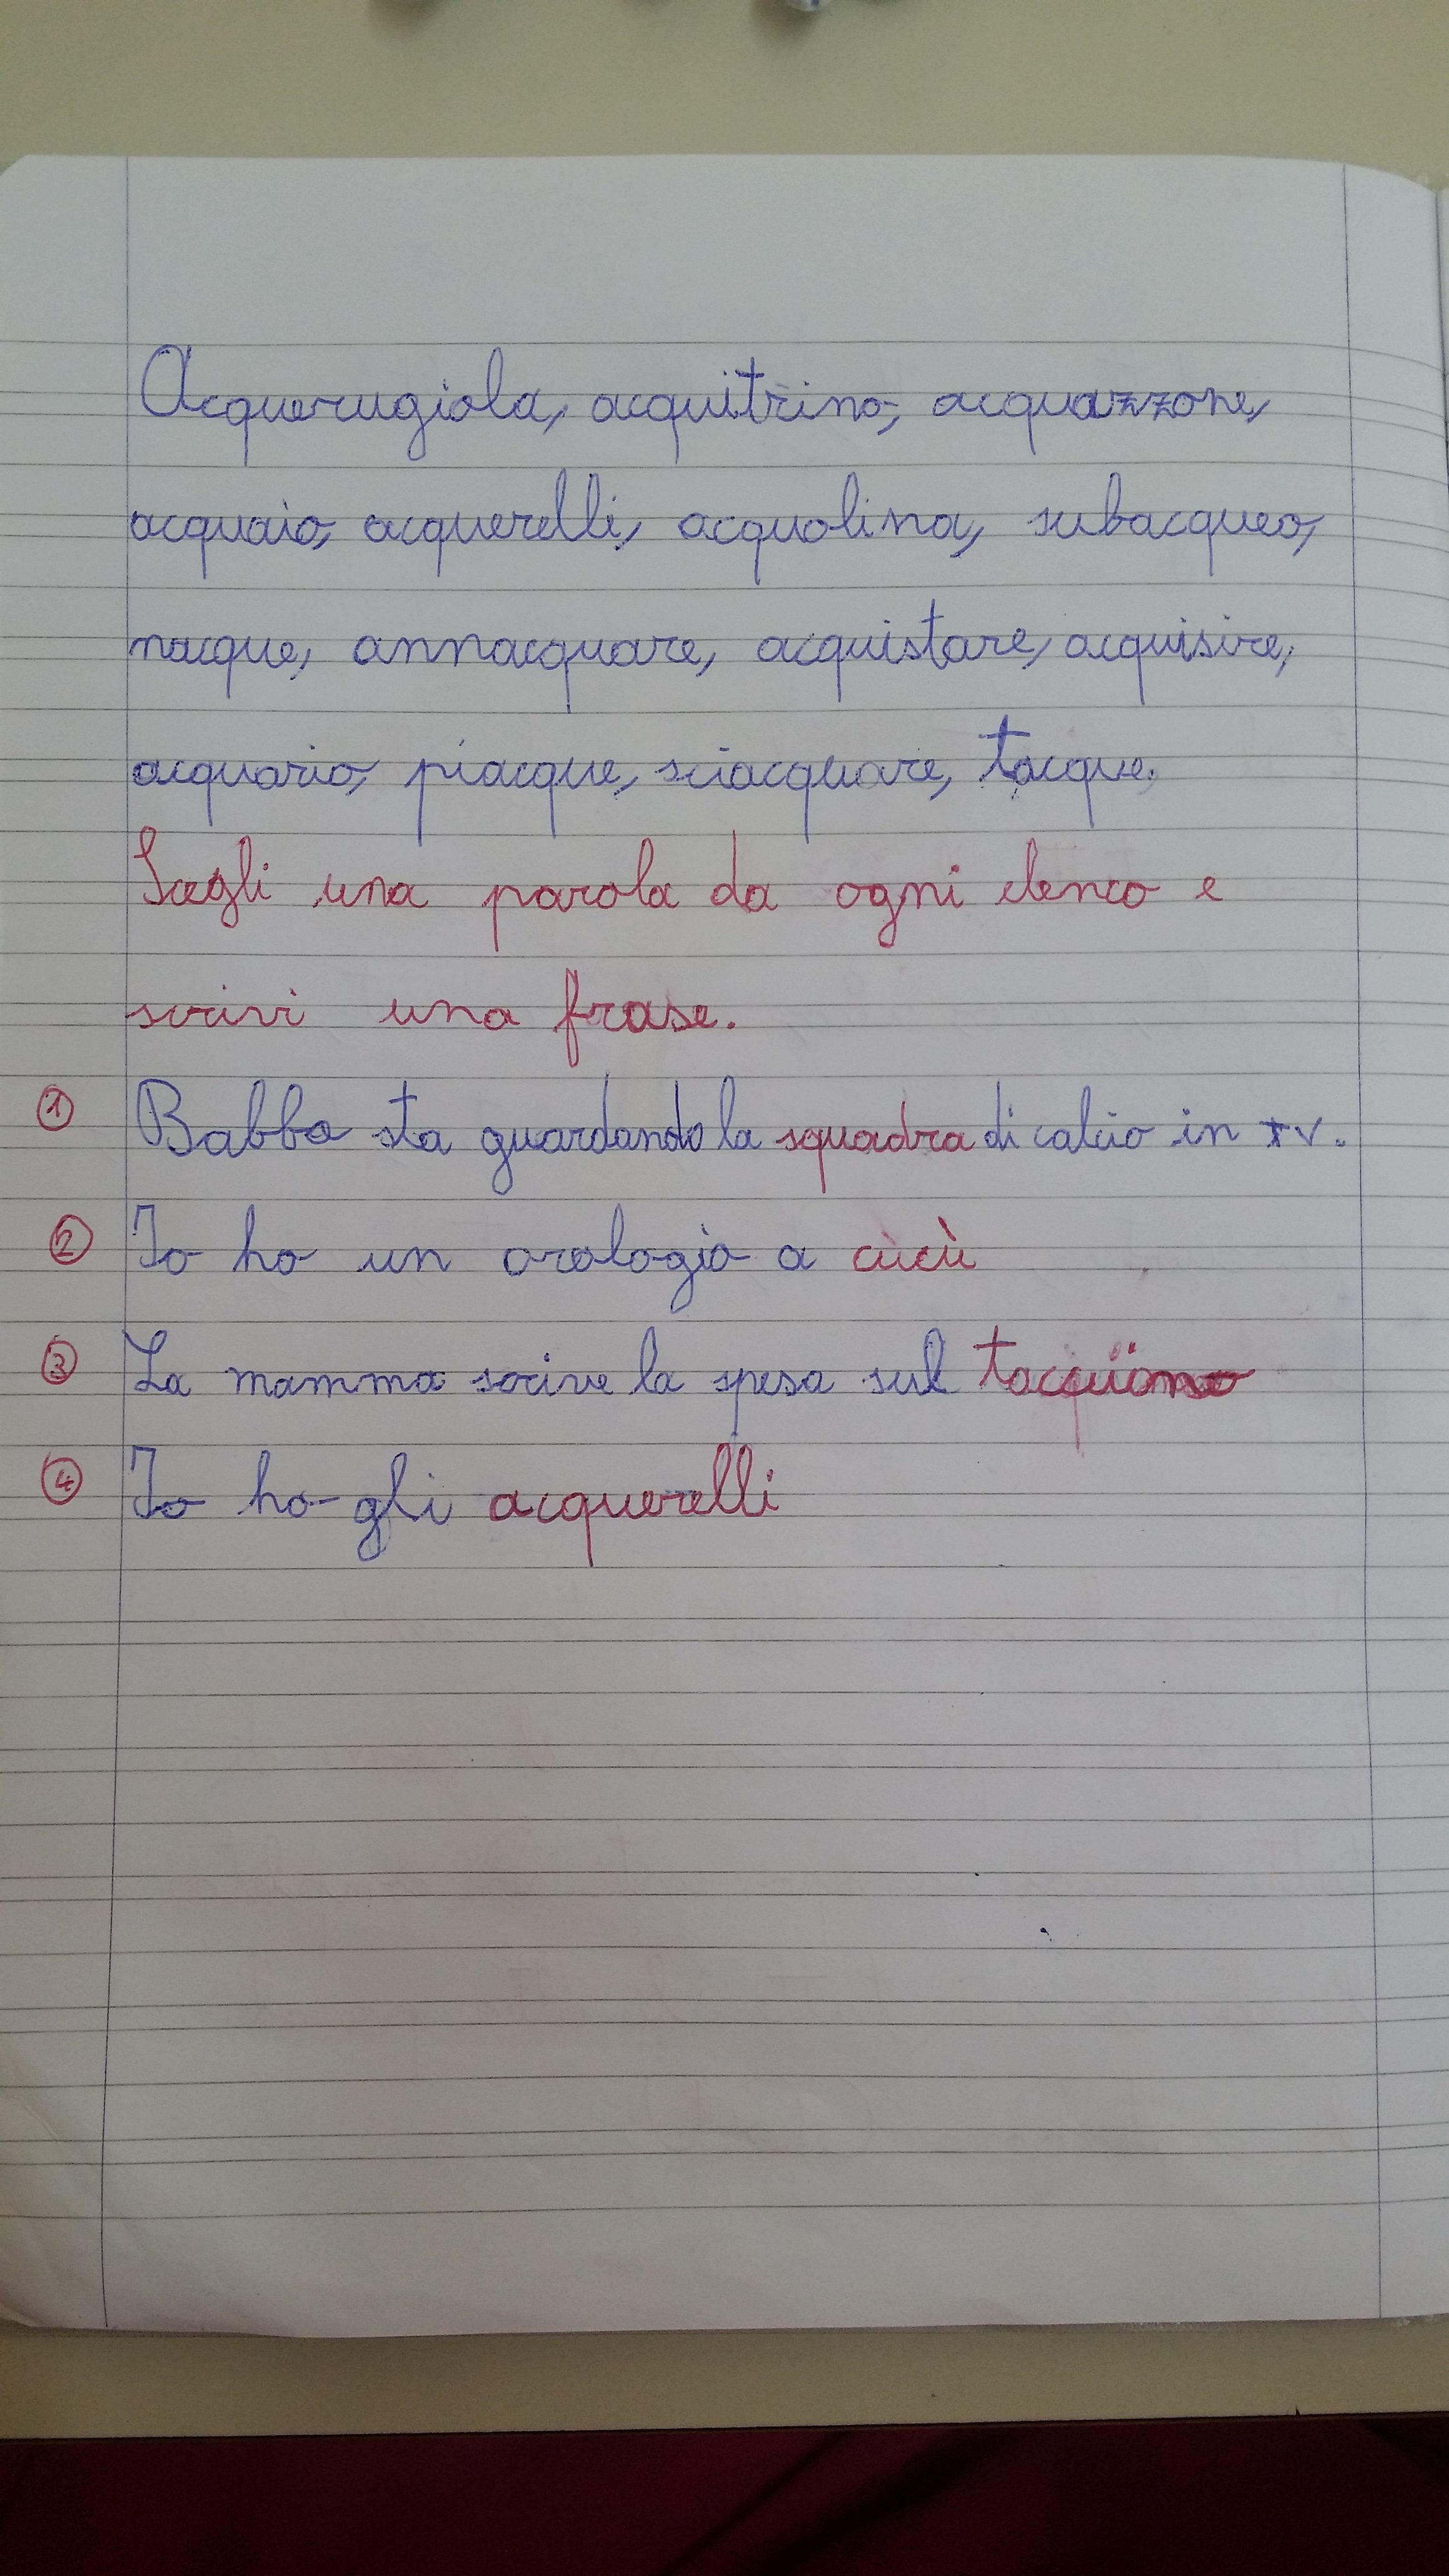 Acquerugiola, acquitrino, acquazzone,
acquaio, acquerelli, acquolina, subacqueo,
nacque, annacquare, acquistare, acquisire,
acquario, piacque, sciacquare, tacque.
Scegli una parola da ogni elenco e
scrivi una frase.
1 Babbo sta guardando la squadra di calcio in tv.
2 Io ho un orologio a cùcù
3 La mamma scrive la spesa sul
4 Io ho gli acquerelli